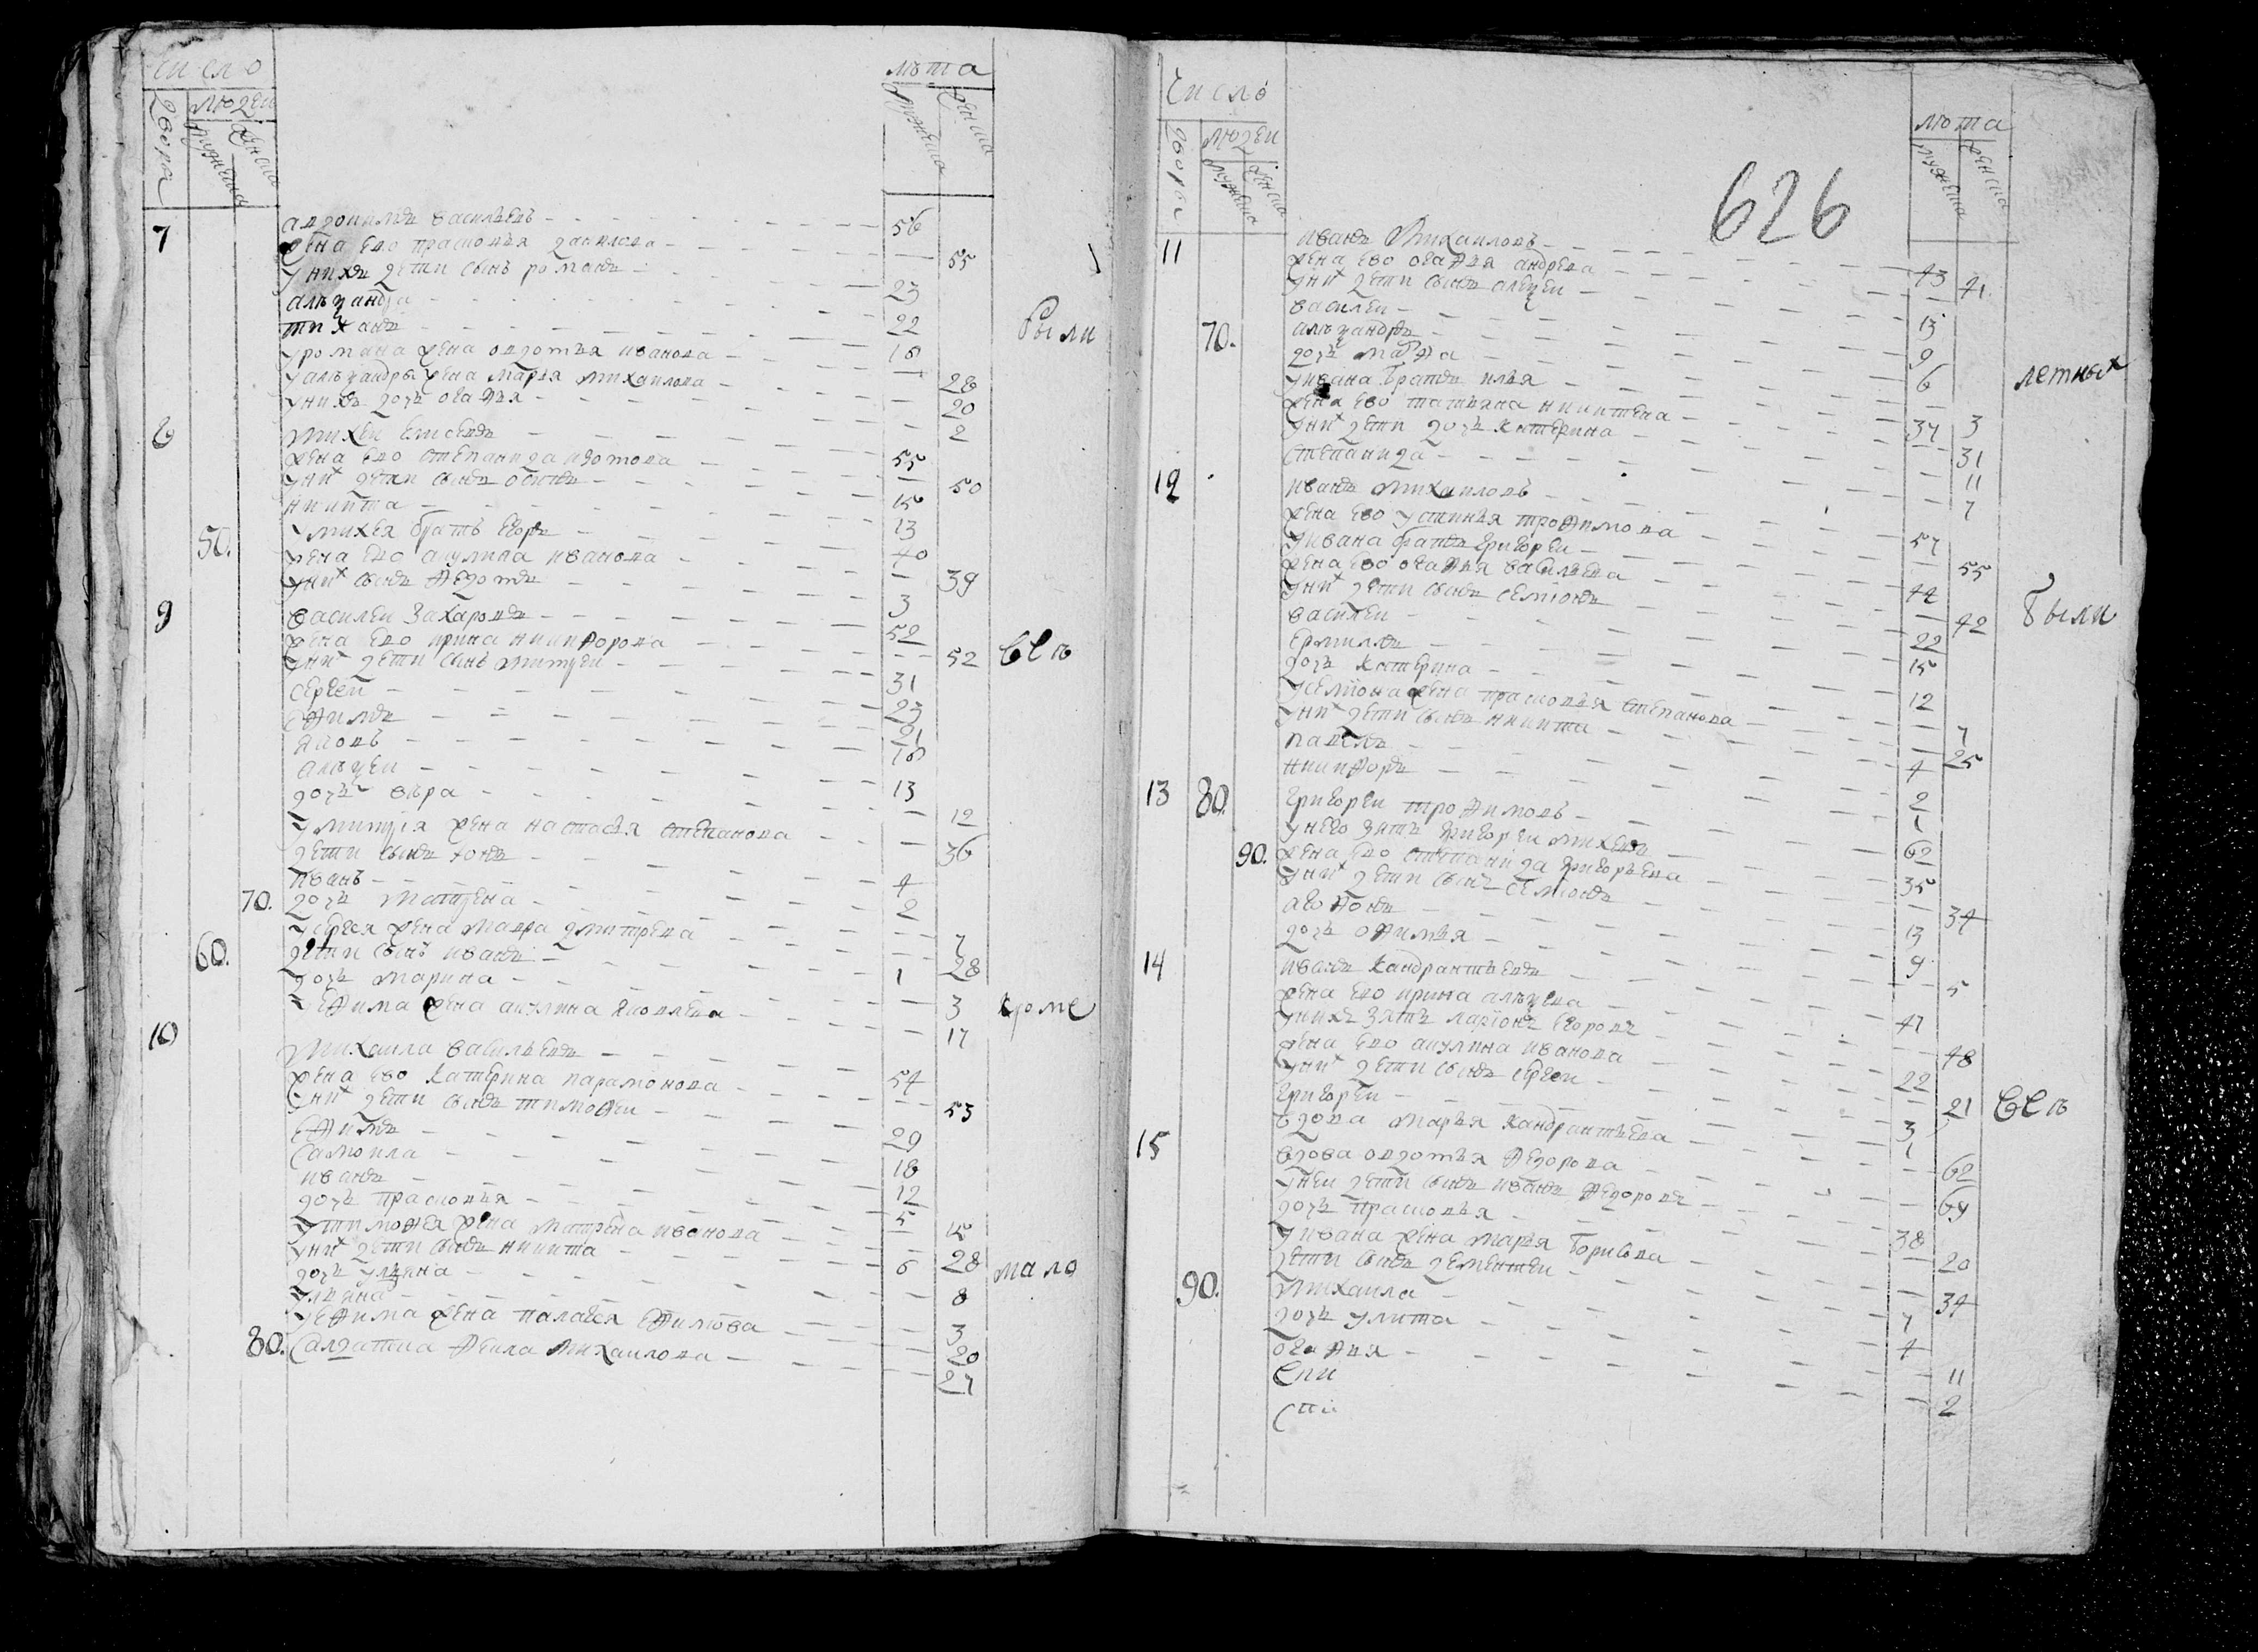 число
двора
людеи
мужеска
женска
лѣта
мужеска
женска
7
авдокимъ василѣевъ 56
жена ево прасковья данилова 55
у нихъ дети сынъ романъ 23
алѣѯандръ 22
тиханъ 18
у романа жена овдотья иванова 28
у алѣѯандры жена марья михаилова 20
у нихъ дочь огафья 2
были
8
михеи елисеевъ 55
жена ево степанида изотова 50
у них дети сынъ осипъ 15
никита 13
50. у михея братъ егоръ 40
жена ево акулина иванова 39
у них сынъ федотъ 3
9
василеи захаровъ 52
жена ево ирина никифорова 52
всѣ
у них дети сынъ митреи 31
сергеи 23
ефимъ 21
яковъ 18
алѣѯеи 13
дочь вѣра 12
у митрея жена настасья степанова 36
дети сынъ ионъ 4
иванъ 2
70. дочь матрена 7
у сергея жена мавра дмитрева 28
60. дети сынъ иванъ 1
дочь марина 3
кроме
у ефима жена акулина яковлева 17
10
михаила василѣевъ 54
жена ево катерина парамонова 53
у них дети сынъ тимофеи 29
ефимъ 18
самоила 12
иванъ 5
дочь прасковья 15
у тимофея жена матрена иванова 28
у них дети сынъ никита 6
дочь ульяна 8
мало
ульяна 3
у ефима жена палагея ефимова 20
80. салдатка фекла михаилова 27
число
двора
людеи
мужеска
женска
лѣта
мужеска
женска
626
11
иванъ михаиловъ 43
жена ево огафья андрева 41
у них дети сынъ алеѯеи 13
василеи 9
70. алѣѯандръ 6
дочь марфа 3
летных
у ивана братъ илья 34
жена ево татьяна никитена 31
у них дети дочь катерина 11
степанида 7
12
иванъ михаиловъ 57
жена ево устинья трофимова 55
у ивана братъ григореи 44
жена ево огафья василѣева 42
у них дети сынъ семионъ 22
были
василеи 15
ермилъ 12
дочь катерина 7
у семиона жена прасковья степанова 25
у них дети сынъ никита 4
павелъ 2
никифоръ 1
13
80. григореи трофимовъ 62
у него зять григореи михеевъ 35
90. жена ево степанида григорьева 34
у них дети сынъ семионъ 13
агофонъ 9
дочь офимья 5
14
иванъ кандратьевъ 47
жена ево ирина алѣѯева 48
у нихъ зять ларионъ егоровъ 22
жена ево акулина иванова 21
всѣ
у них дети сынъ сергеи 3
григореи 1
вдова марья кандратьева 62
15
вдова овдотья федорова 69
у неи дети сынъ иванъ федоровъ 38
дочь прасковья 20
у ивана жена марья борисова 34
дети сынъ дементеи 7
90. михаила 4
дочь улита 11
огафья 2